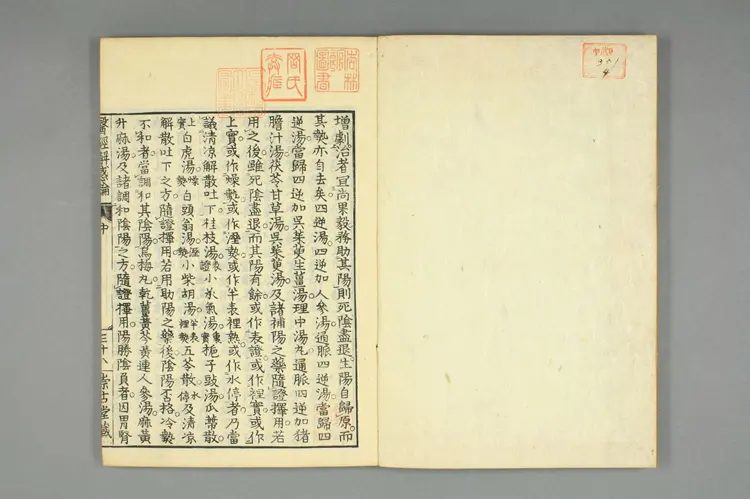 增劇治者宜尚果毅務助其陽則死陰盡退生陽自歸原而
其熱亦自去矣四逆湯四逆加人參湯通脈四逆湯當歸四
逆湯當歸四逆加吳茱萸生薑湯理中湯丸通脈四逆加猪
膽汁湯茯苓甘草湯吳茱萸湯及諸補陽之藥隨證擇用若
用之後雖死陰盡退而其陽有餘或作表證或作裡實或作
上實或作燥熱或作溼熱或作半表裡熱或作水停者乃當
議清凉解散吐下桂枝湯表證小承氣湯裏實梔子豉湯瓜蒂散
上實白虎湯燥熱白頭翁湯溼熱小柴胡湯半表裡熱五苓散水停及清凉
解散吐下之方隨證擇用若用助陽之藥後陰陽否格冷熱
不和者當調和其陰陽烏梅丸乾薑黃芩黃連人參湯麻黃
升麻湯及諸調和陰陽之方隨證擇用陽勝陰負者因胃腎
醫經解惑論
中
三十八
崇古堂藏
圖書